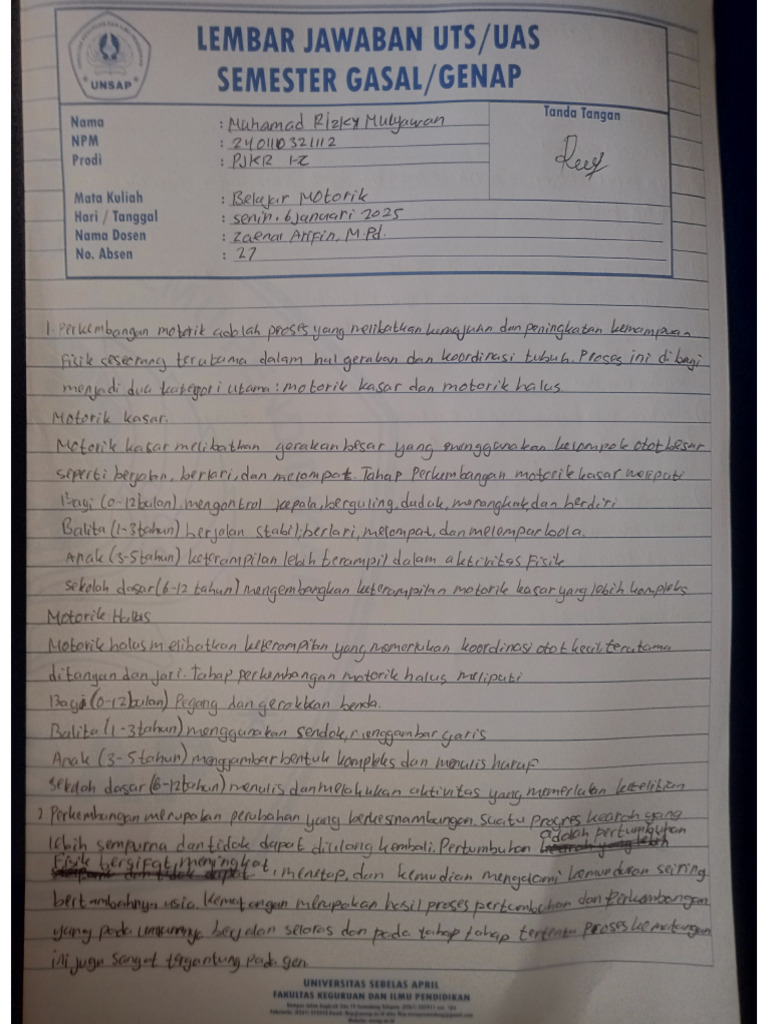 UNSAP
LEMBAR JAWABAN UTS/UAS
SEMESTER GASAL/GENAP
Nama : Muhamad Rizky Mulyawan
Tanda Tangan
NPM : 240110321112
Prodi : PJKR 1-Z
Mata Kuliah : Belajar Motorik
Hari / Tanggal : Senin, 6 Januari 2025
Nama Dosen : Zaenal Arifin, M.Pd.
No. Absen : 27
1. Perkembangan motorik adalah proses yang melibatkan kemajuan dan peningkatan kemampuan
Fisik seseorang terutama dalam hal gerakan dan koordinasi tubuh. Proses ini di bagi
menjadi dua kategori utama : motorik kasar dan motorik halus
Motorik kasar.
Motorik kasar melibatkan gerakan besar yang menggunakan kelompok otot besar
seperti berjalan, berlari, dan melompat. Tahap Perkembangan motorik kasar meliputi
Bayi (0-12 bulan) mengontrol kepala, berguling, duduk, merangkak, dan berdiri
Balita (1-3 tahun) berjalan stabil, berlari, melompat, dan melompar bola.
Anak (3-5 tahun) keterampilan lebih terampil dalam aktivitas Fisik
Sekolah dasar (6-12 tahun) mengembangkan keterampilan motorik kasar yang lebih kompleks
Motorik Halus
Motorik halus melibatkan keterampilan yang memerlukan koordinasi otot kecil terutama
ditangan dan jari. Tahap perkembangan motorik halus meliputi
Bayi (0-12 bulan) Pegang dan gerakkan benda.
Balita (1-3 tahun) menggunakan sendok, menggambar garis
Anak (3-5 tahun) menggambar bentuk kompleks dan menulis huruf
Sekolah dasar (6-12 tahun) menulis dan melakukan aktivitas yang memerlukan ketelitian
2 Perkembangan merupakan perubahan yang berkesnambungan. Suatu progres kearah yang
lebih sempurna dan tidak dapat diulang kembali. Pertumbuhan adalah pertumbuhan
Fisik bersifat, meningkat, menetap, dan kemudian mengalami kemunduran seiring
bertambahnya usia. Kematangan merupakan hasil proses pertumbuhan dan Perkembangan
yang pada umumnya berjalan selaras dan pada tahap tahap tertentu Proses kematangan
ini juga sangat tergantung pada gen
UNIVERSITAS SEBELAS APRIL
FAKULTAS KEGURUAN DAN ILMU PENDIDIKAN